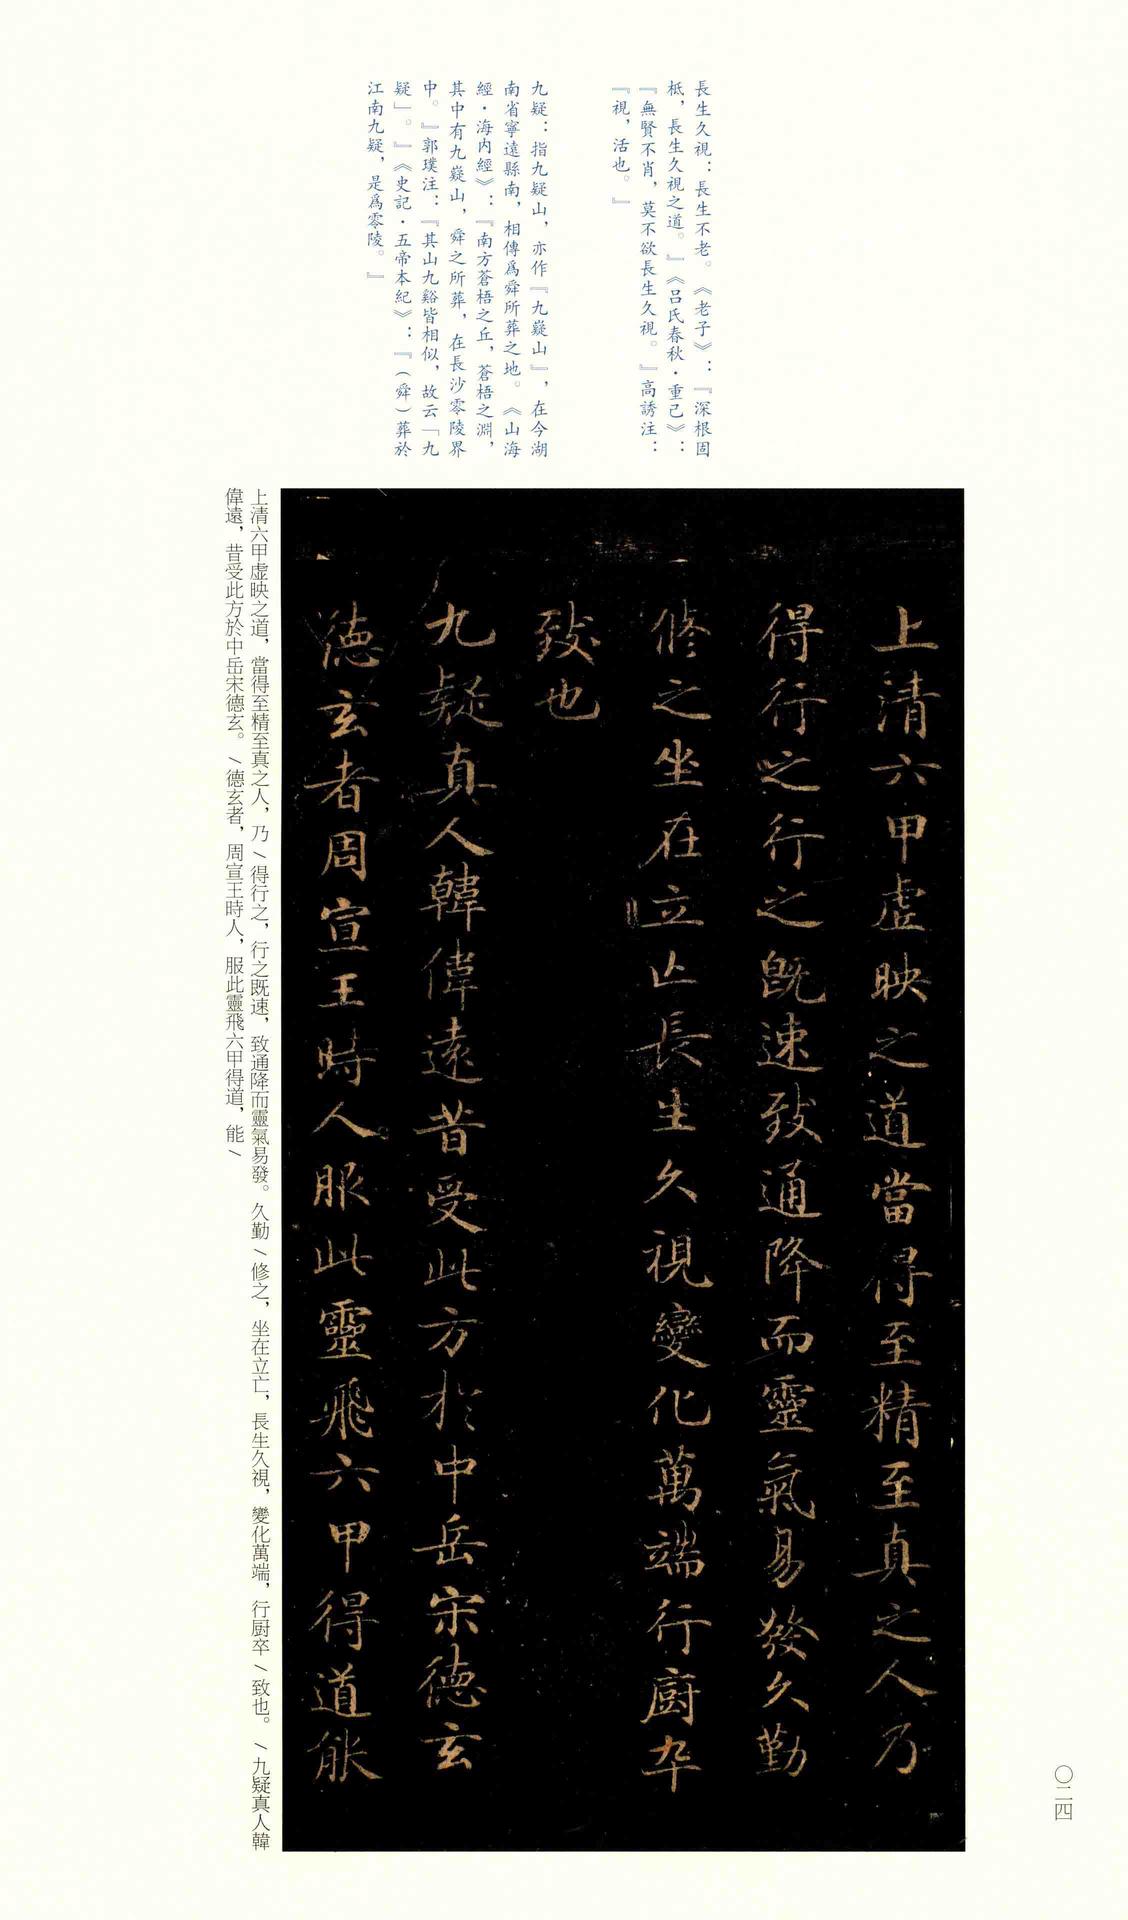 長生久視：長生不老。《老子》：『深根固
柢，長生久視之道。』《呂氏春秋·重己》：
『無賢不肖，莫不欲長生久視。』高誘注：
『視，活也。』
九疑：指九疑山，亦作『九嶷山』，在今湖
南省寧遠縣南，相傳爲舜所葬之地。《山海
經·海内經》：『南方蒼梧之丘，蒼梧之淵，
其中有九嶷山，舜之所葬，在長沙零陵界
中。』郭璞注：『其山九谿皆相似，故云「九
疑」。』《史記·五帝本紀》：『（舜）葬於
江南九疑，是爲零陵。』
上清六甲虛映之道當得至精至真之人乃
得行之行之既速致通降而靈氣易發久勤
修之坐在立亡長生久視變化萬端行厨卒
致也
九疑真人韓偉遠昔受此方於中岳宋德玄
德玄者周宣王時人服此靈飛六甲得道能
上清六甲虛映之道，當得至精至真之人，乃\得行之，行之既速，致通降而靈氣易發。久勤\修之，坐在立亡，長生久視，變化萬端，行厨卒\致也。\九疑真人韓
偉遠，昔受此方於中岳宋德玄。\德玄者，周宣王時人，服此靈飛六甲得道，能\
〇二四